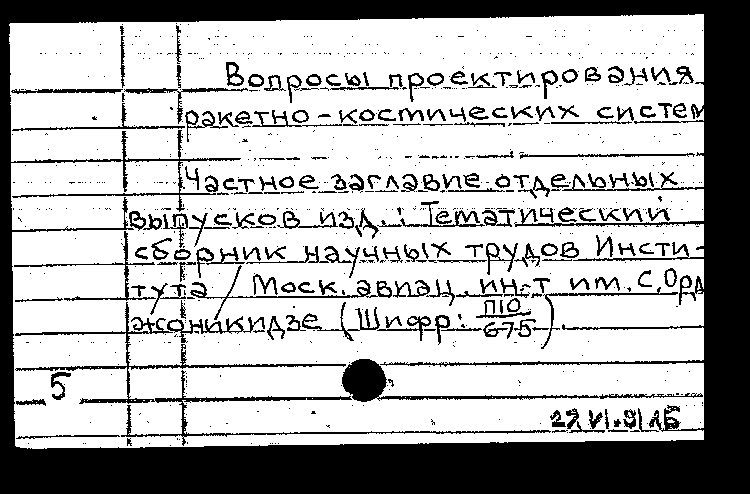 Вопросы проектирования
ракетно-костических систем
Частное заглавие отдельных
выпусков изд.: Тематический
сборник научных трудов Инсти-
тута / Моск. авиац. ин-т им. С. Орд
жоникидзе (Шифр: П10
675).
5